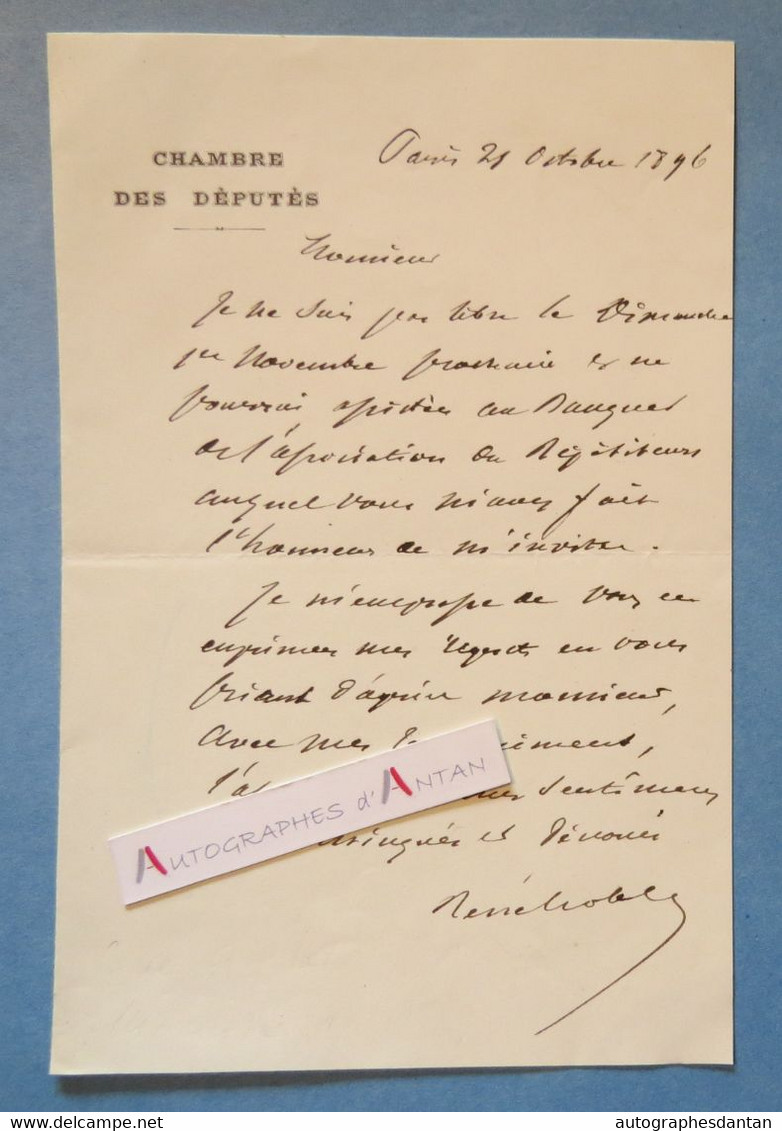 CHAMBRE
DES DÈPUTÈS
Paris 21 Octobre 1896
Monsieur
Je ne suis pas libre le Dimanche
1er Novembre prochain et ne
pourrai assister au Banquet
de l'association des Répétiteurs
auquel vous m'avez fait
l'honneur de m'inviter.
Je m'empresse de vous en
exprimer mes regrets en vous
priant d'agréer monsieur,
avec mes
mes sentimens
et dévoués
AUTOGRAPHES d'ANTAN
autographesdantan